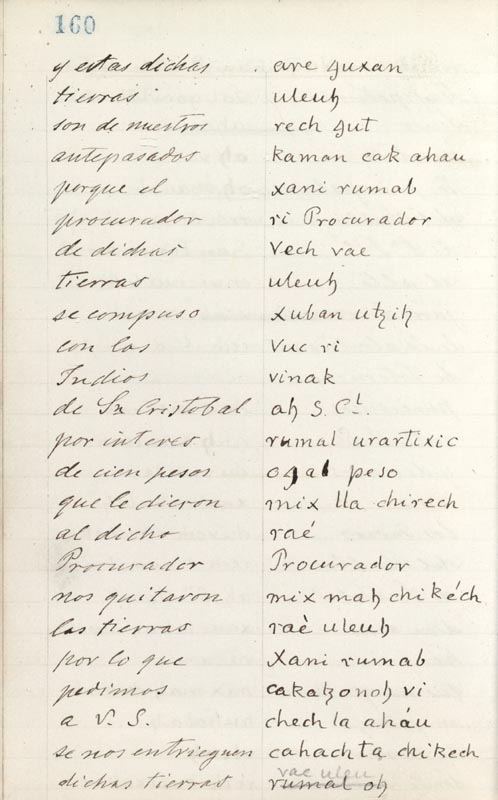 160
y estas dichas . are ꜯuxan
tierras uleuꜧ
son de nuestros rech ꜯut
antepasados kaman cak ahau
porque el xani rumal
procurador ri Procurador
de dichas Vech vae
tierras uleuꜧ
se compuso xuban utziꜧ
con los Vuc ri
Indios vinak
de Sn Cristobal aꜧ S. Cl.
por interes rumal urartixic
de cien pesos oꜯal peso
que le dieron mix lla chirech
al dicho raé
Procurador Procurador
nos quitaron mix maꜧ chikéch
las tierras raè uleuꜧ
por lo que Xani rumal
pedimos cakatzonoꜧ vi
a V. S. chech la aháu
se nos entrieguen cahachta chikech
vae uleu
dichas tierras rumal oꜧ